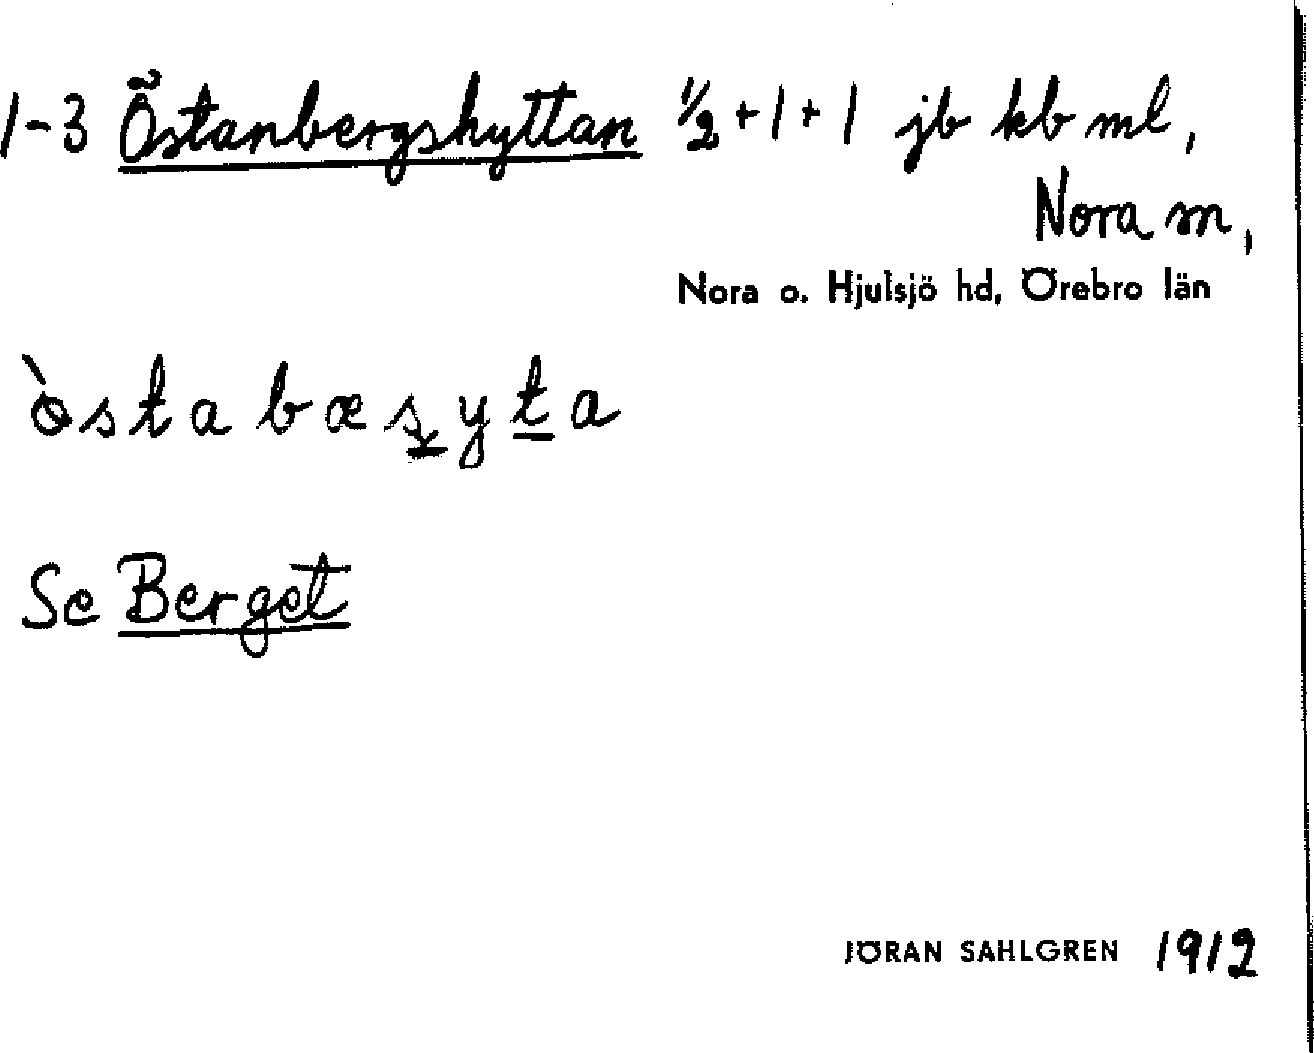 1-3 Östanbergshyttan ½ + 1 + 1 jb kb ml,
Nora m,
Nora o. Hjulsjö hd, Örebro län
ò s t a b æ s y t a
Se Berget
JÖRAN SAHLGREN 1912